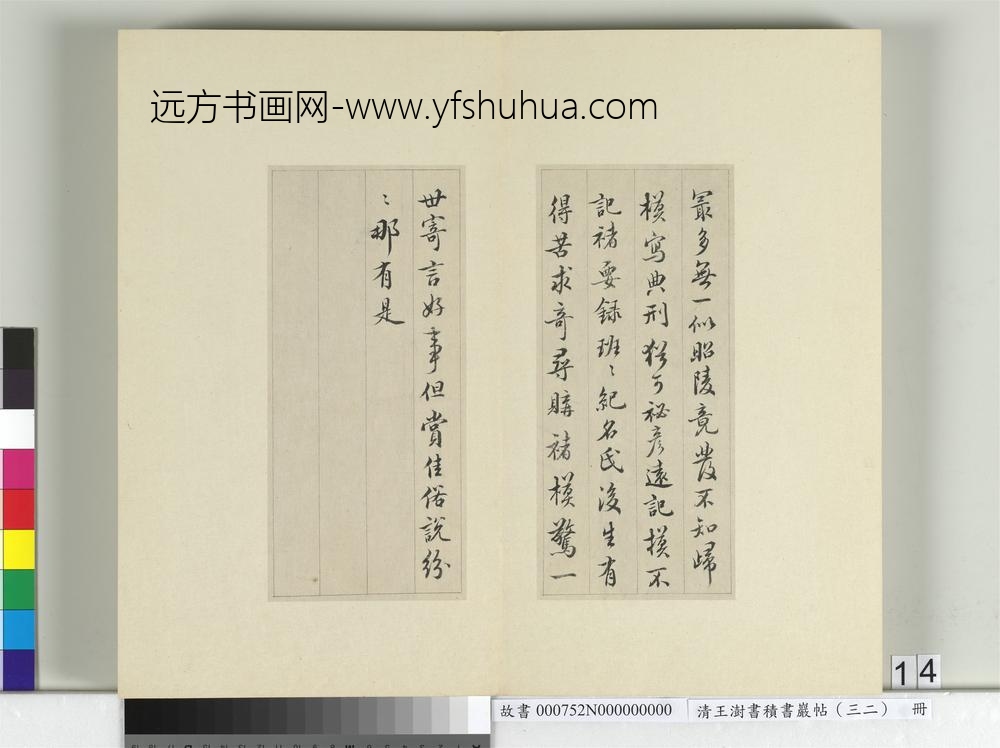 远方书画网-www.yfshuhua.com
最多無一似昭陵竟發不知歸
模寫典刑猶可祕彦遠記摸不
記褚要録班〻紀名氏後生有
得苦求奇尋購褚模驚一
世寄言好事但賞佳俗說紛
〻那有是
14
故書 000752N000000000 清王澍書積書巖帖（三二） 冊